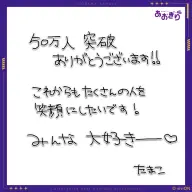 あおぎり
50万人 突破
ありがとうございます!!
これからもたくさんの人を
笑顔にしたいです!
みんな 大好きーー♡
たまこ